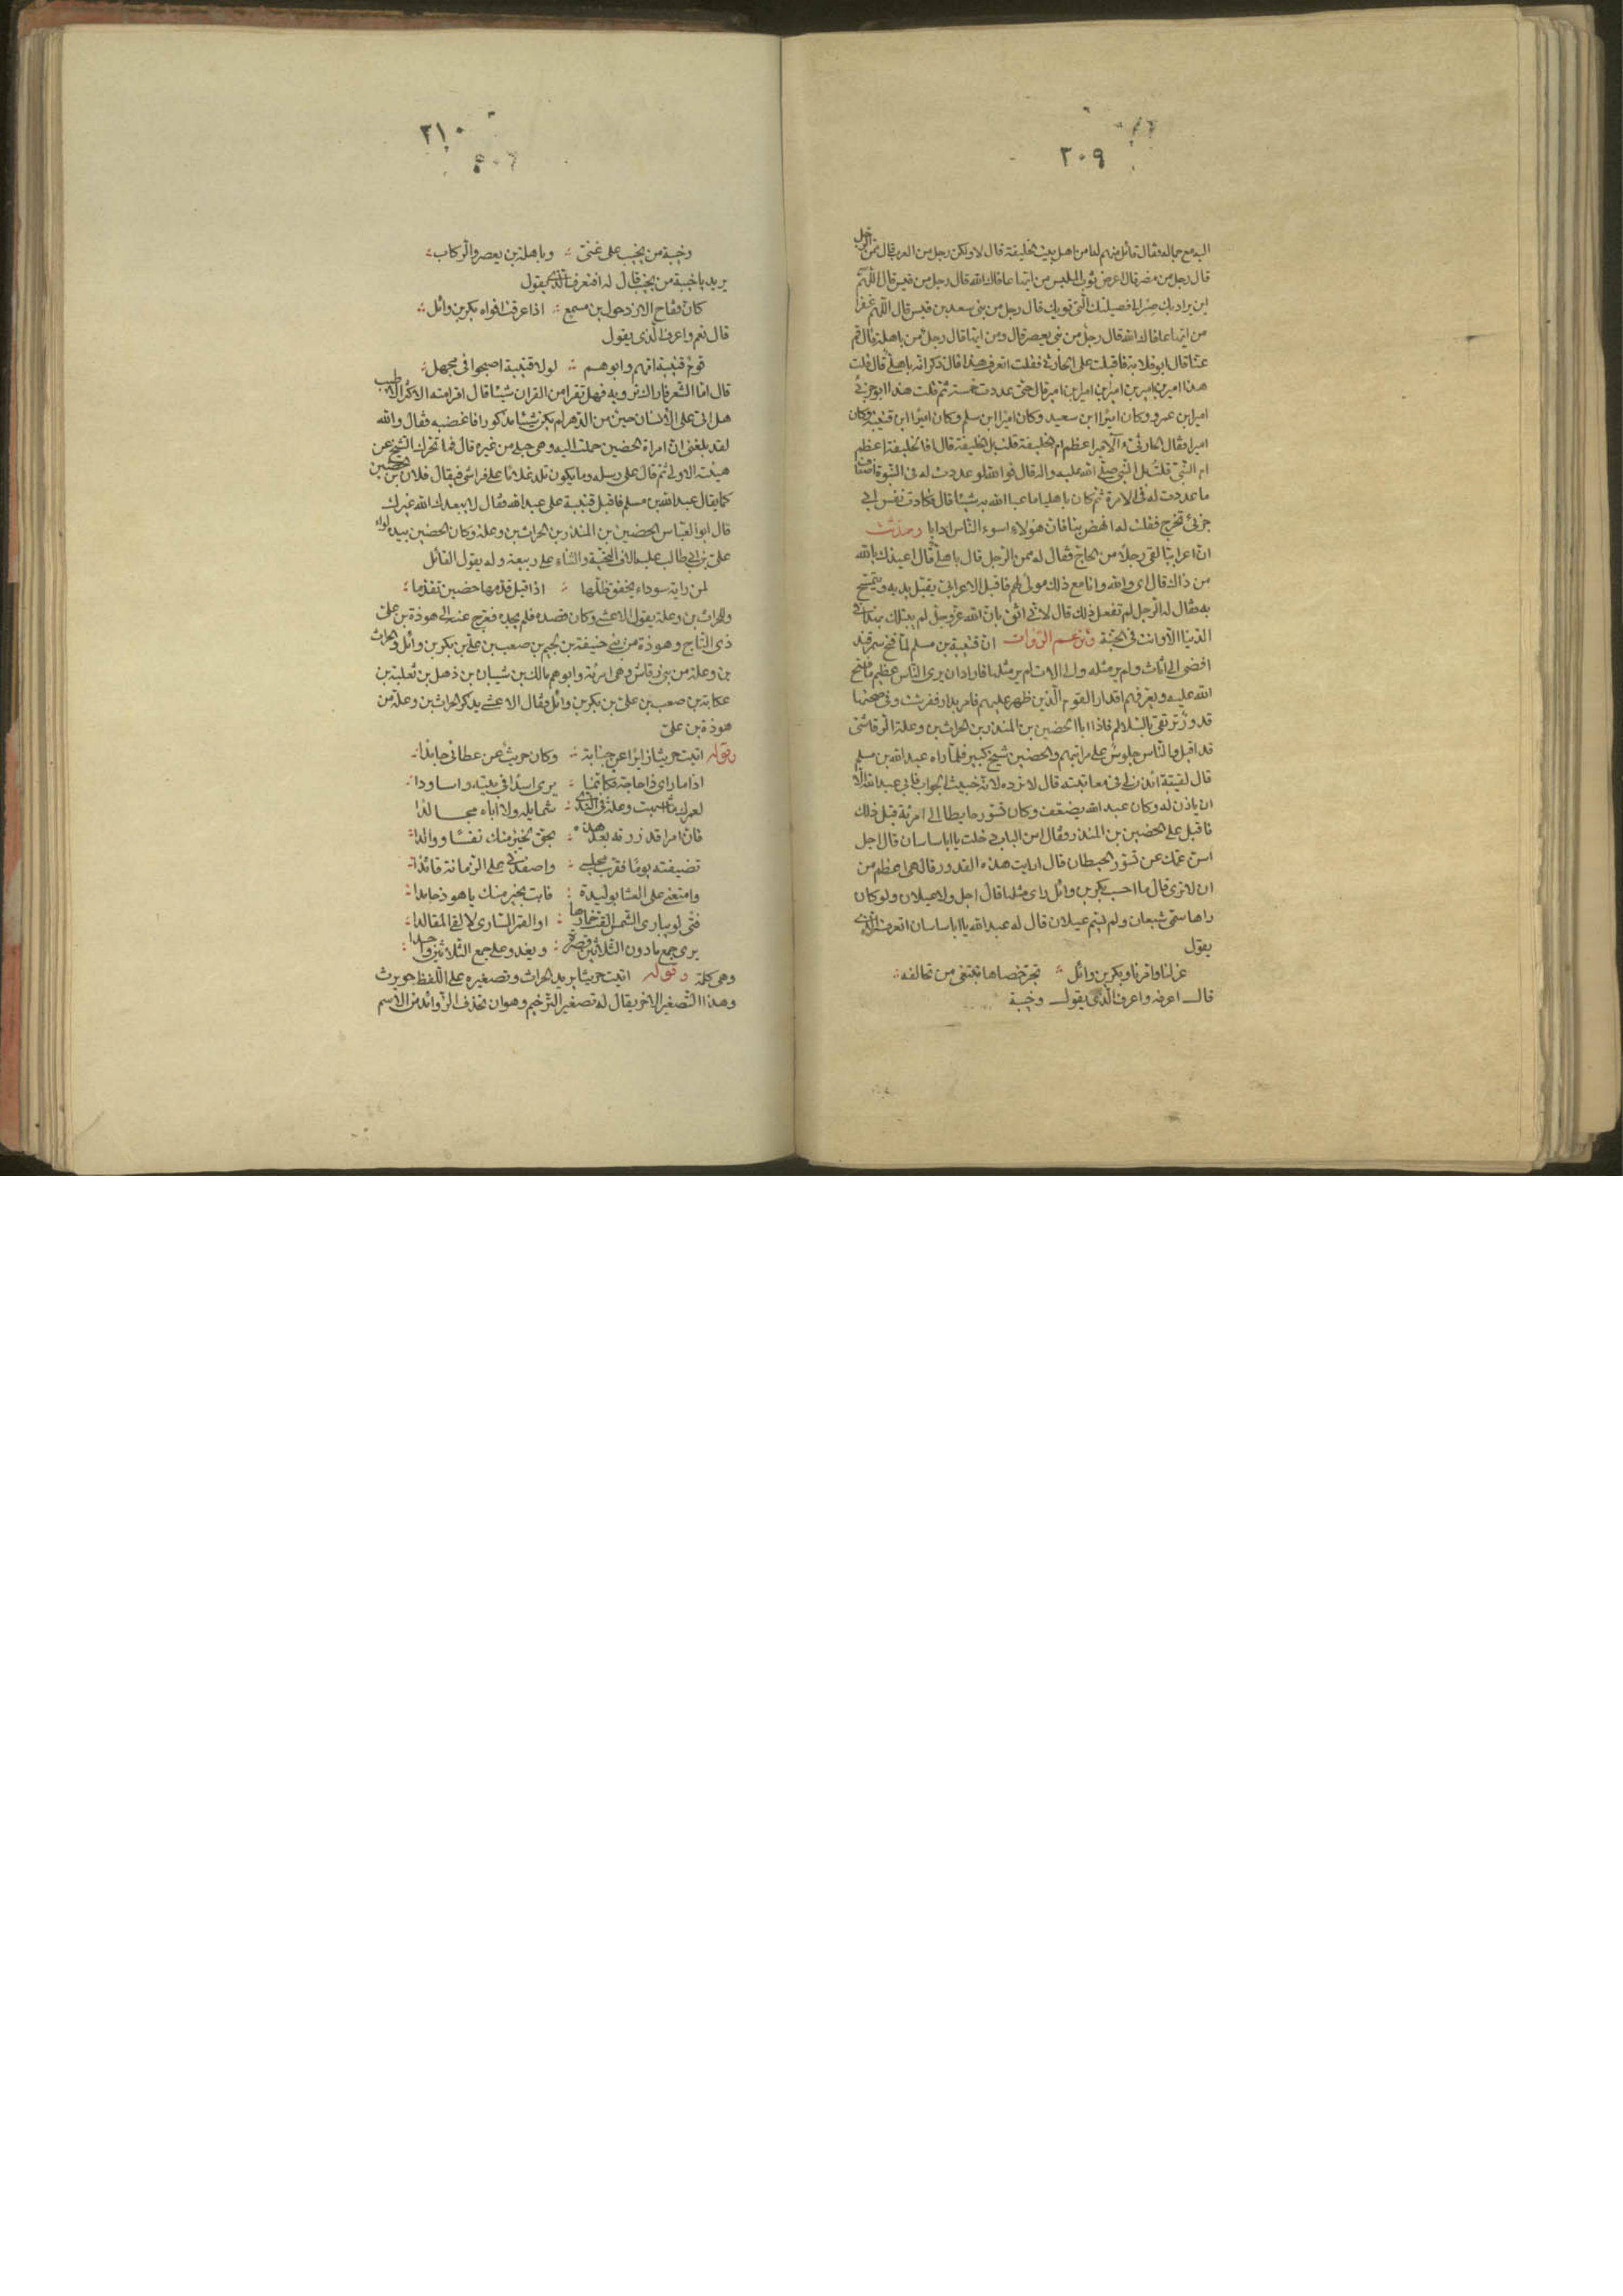 ٣٠٩
اليه مع جماله فقال قائل منهم له امن اهل بيت الخليفة قال لا ولكن رجل من العرب قال ممن الرجل
قال رجل من مضر قال اعرض ثوب الملبس من ايها عافاك الله قال رجل من قيس قال اللهم
اين يراد بك صر الى فصيلتك التى تؤويك قال رجل من بنى سعد بن قيس قال اللهم غفرا
من ايها عافاك الله قال رجل من بنى يعصر قال ومن ايها قال رجل من باهلة قال قم
عنا قال ابو قلابة فاقبلت على الحارثى فقلت اتعرف هذا قال ذكر انه باهلى قال قلت
هذا امير بن امير بن امير بن امير بن امير قال حتى عددت خمسة ثم قلت هذا ابو جزئ
امير ابن عمرو وكان اميرا ابن سعيد وكان اميرا ابن سلم وكان اميرا ابن قتيبة وكان
اميرا فقال الحارثى الامير اعظم ام الخليفة قلت بل الخليفة قال افالخليفة اعظم
ام النبى قلت بل النبى صلى الله عليه واله قال فوالله لو عددت له فى النبوة اضعاف
ما عددت له فى الامرة ثم كان باهليا ما عبا الله به شيئا قال فكادت نفس ابى
جزئ تخرج فقلت له انهض بنا فان هؤلاء اسوء الناس ادابا وحدثت
ان اعرابيا لقى رجلا من الحاج فقال له ممن الرجل قال باهلى قال اعيذك بالله
من ذاك قال اى والله وانا مع ذلك مولى لهم فاقبل الاعرابى يقبل يديه ويتمسح
به فقال له الرجل لم تفعل ذلك قال لانى اثق بان الله عز وجل لم يبتلك بهذا فى
الدنيا الا وانت فى الجنة وتزعم الرواة ان قتيبة بن مسلم لما فتح سمرقند
افضى الى اثاث لم ير مثله والى الات لم ير مثلها فاراد ان يرى الناس عظيم ما فتح
الله عليه ويعرفهم اقدار القوم الذين ظهر عليهم فامر بدار ففرشت وفى صحنها
قدور ترتقى بالسلالم فاذا ابا الحضين بن المنذر بن الحراث بن وعلة الرقاشى
قد اقبل والناس جلوس على مراتبهم والحضين شيخ كبير فلما راه عبد الله بن مسلم
قال لقيتبة ائذن لى فى معاتبته قال لا ترده لانه خبيث الجواب فابى عبد الله الا
ان ياذن له وكان عبد الله يضعف وكان تسور حايطا الى امرئة قبل ذلك
فاقبل على الحضين بن المنذر فقال امن الباب دخلت يا ابا ساسان قال اجل
اسن عمك عن تسور الحيطان قال ارايت هذه القدور قال هى اعظم من
ان لا ترى قال ما احسب بكر بن وائل راى مثلها قال اجل ولا عيلان ولو كان
راها سمى شبعان ولم يسم عيلان قال له عبد الله يا ابا ساسان اتعرف الذى
يقول
عزلنا وامرنا وبكر بن وائل ؞ تجر خصاها تبتغى من تحالفه ؞
قال اعرفه واعرف الذى يقول وخيبة
٣١٠
وخيبة من يخيب على غنى ؞ وباهلة بن يعصر والركاب ؞
يريد يا خيبة من يخيب قال له افتعرف الذى يقول
كان فقاح الازد حول ابن مسمع ؞ اذا عرقت افواه بكر بن وائل ؞
قال نعم واعرف الذى يقول
قوم قتيبة امهم وابوهم ؞ لولا قتيبة اصبحوا فى مجهل ؞
قال اما الشعر فاراك ترويه فهل تقرا من القران شيئا قال اقرا منه الاكثر الاطيب
هل اتى على الانسان حين من الدهر لم يكن شيئا مذكورا فاغضبه فقال والله
لقد بلغنى ان امراة الحضين حملت اليه وهى حبلى من غيره قال فما تحرك الشيخ عن
هيئته الاولى ثم قال على رسله وما يكون تلد غلاما على فراشى فيقال فلان بن الحضين
كما يقال عبد الله بن مسلم فاقبل قتيبة على عبد الله فقال لا يبعد الله غيرك
قال ابو العباس الحضين بن المنذر بن الحراث بن وعلة وكان الحضين بيده لواء
على بن ابى طالب عليه الاف التحية والثناء على ربيعة وله يقول القائل
لمن راية سوداء يخفق ظلها ؞ اذا قيل قدمها حضين تقدما ؞
وللحراث بن وعلة يقول الاعشى وكان قصده فلم يجده فعرج عنه الى هوذة بن على
ذى التاج وهوذة من بنى حنيفة بن لجيم بن صعب بن على بن بكر بن وائل والحراث
بن وعلة من بنى رقاش وهى امرئة وابوهم مالك بن شيبان بن ذهل بن ثعلبة بن
عكابة بن صعب بن على بن بكر بن وائل فقال الاعشى يذكر الحراث بن وعلة من
هوذة بن على
وقوله اتيت حريثا زائرا عن جنابة ؞ وكان حريث عن عطائى جامدا ؞
اذا ما راى ذا حاجة فكانما ؞ يرى اسدا فى بيته واساودا ؞
لعمرك ما اشبهت وعلة فى الندى ؞ شمايله ولا اباه مجالدا ؞
فان امرا قد زرته بعد هذه ؞ بحق لخير منك نفسا ووالدا ؞
تضيفته يوما فقرب مجلسى ؞ واصفدنى على الزمانة قائدا ؞
وامتعنى على العشا بوليدة ؞ فابت بخير منك يا هوذ حامدا ؞
فتى لو يبارى الشمس القت خمارها ؞ او القمر السارى لالقى المقالدا ؞
يرى جمع مادون الثلاثين قصرة ؞ ويغدو على جمع الثلاثين واحدا ؞
وهى كلمة وقوله اتيت حريثا يريد الحراث وتصغيره على اللفظ حويرث
وهذا التصغير الاخر يقال له تصغير الترخيم وهو ان تحذف الزوائد من الاسم